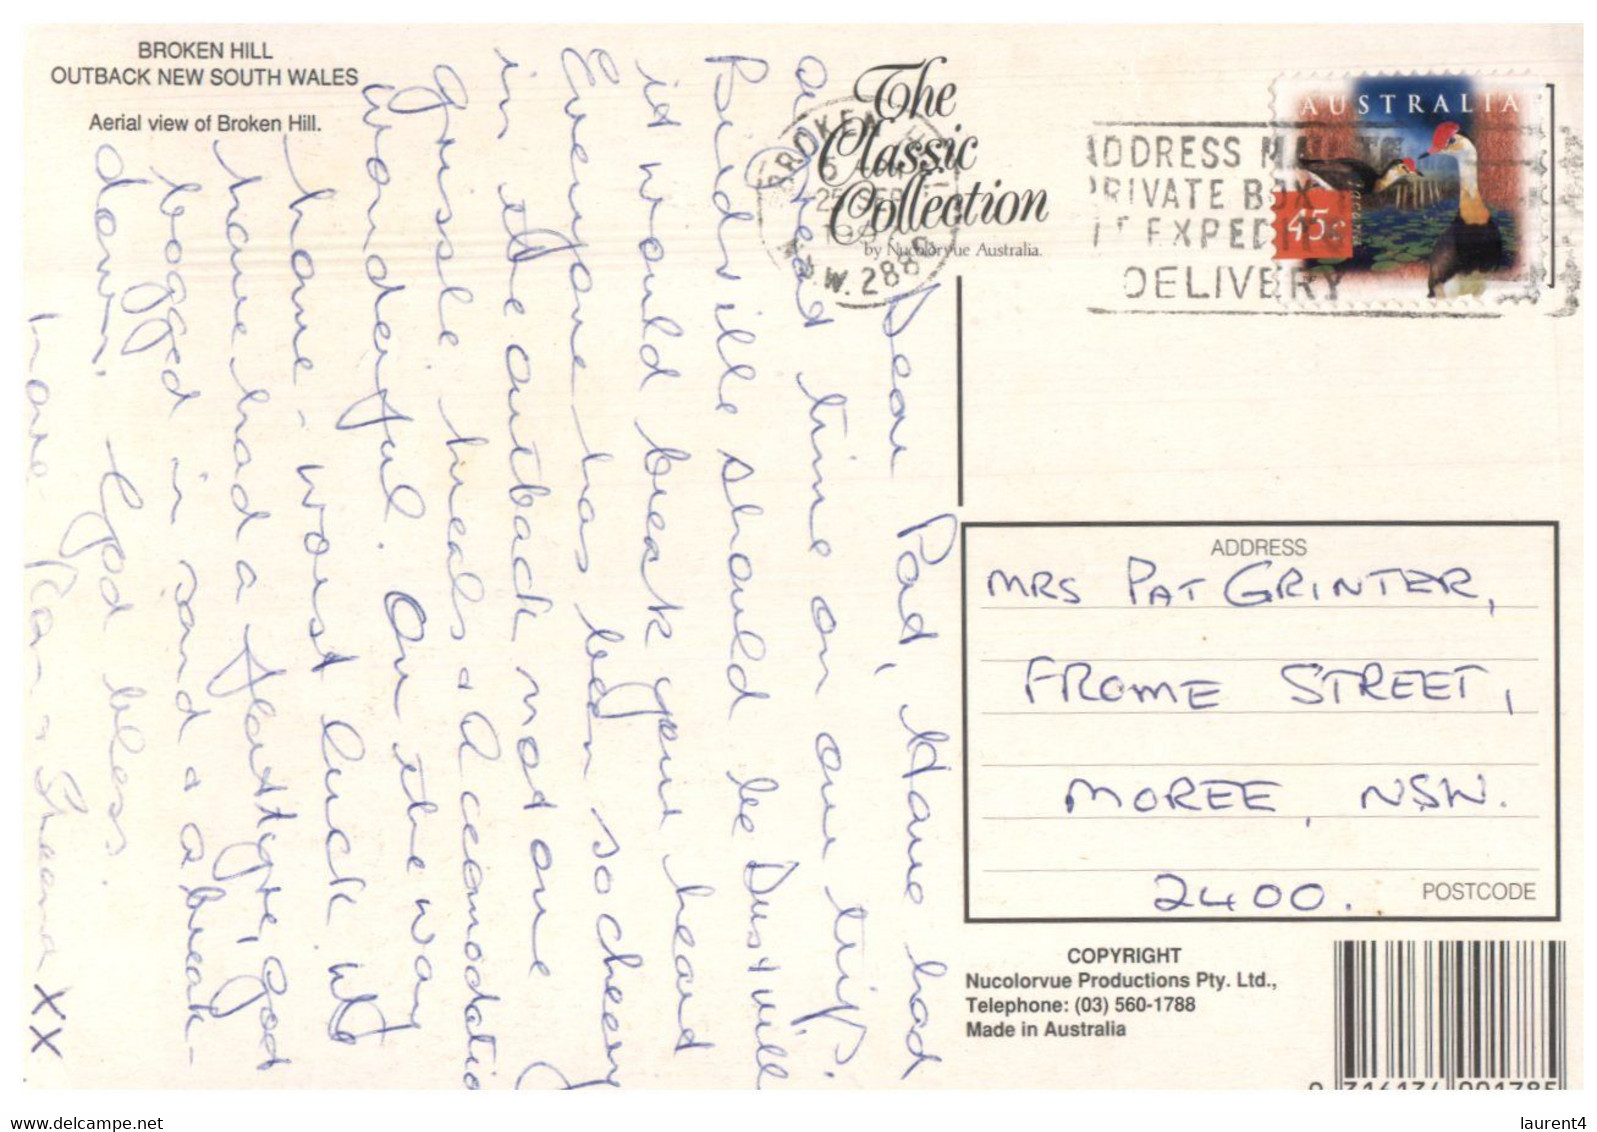 BROKEN HILL
OUTBACK NEW SOUTH WALES
Aerial view of Broken Hill.
The
Classic
Collection
by Nucolorvue Australia.
BROKEN
25 SEP
N.S.W. 2880
ADDRESS MAIL TO
PRIVATE BOX
IT EXPEDITES
DELIVERY
AUSTRALIA
45c
Dear Pat, Have had
a great time on our trip.
Birdsville should be Dustville
it would break your heart
Everyone has been so cheery
in the outback not one
grissle. meals & Accomodation
wonderful. On the way
home - worst luck. We
have had a flat tyre, got
bogged in sand & a break-
down. God bless.
Love Ran & Sheena XX
ADDRESS
MRS PAT GRINTER,
FROME STREET,
MOREE, NSW.
2400.
POSTCODE
COPYRIGHT
Nucolorvue Productions Pty. Ltd.,
Telephone: (03) 560-1788
Made in Australia
9 316134 001785
www.delcampe.net
laurent4